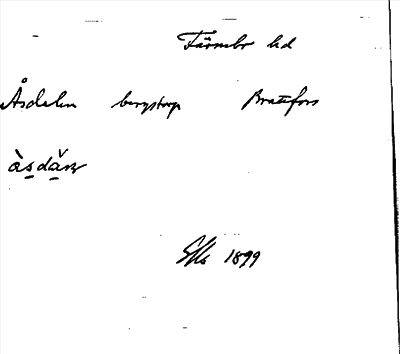 Färnebo hd
Åsdalen bergstorp Brattfors
àsdǎn
1899